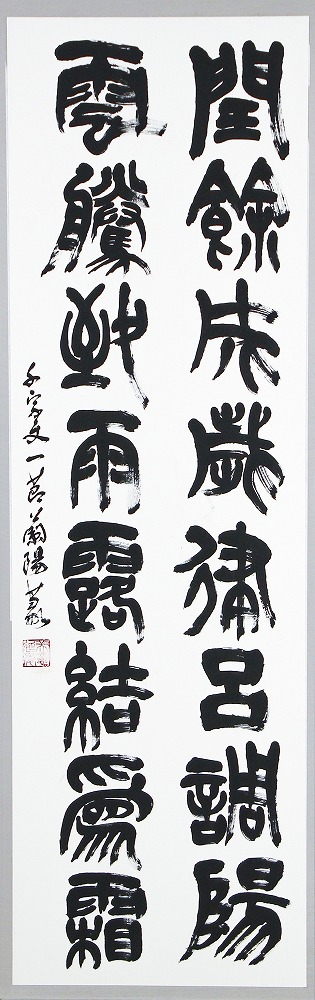 閏餘成歲律呂調陽
雲騰致雨露結爲霜
千字文一節蘭陽